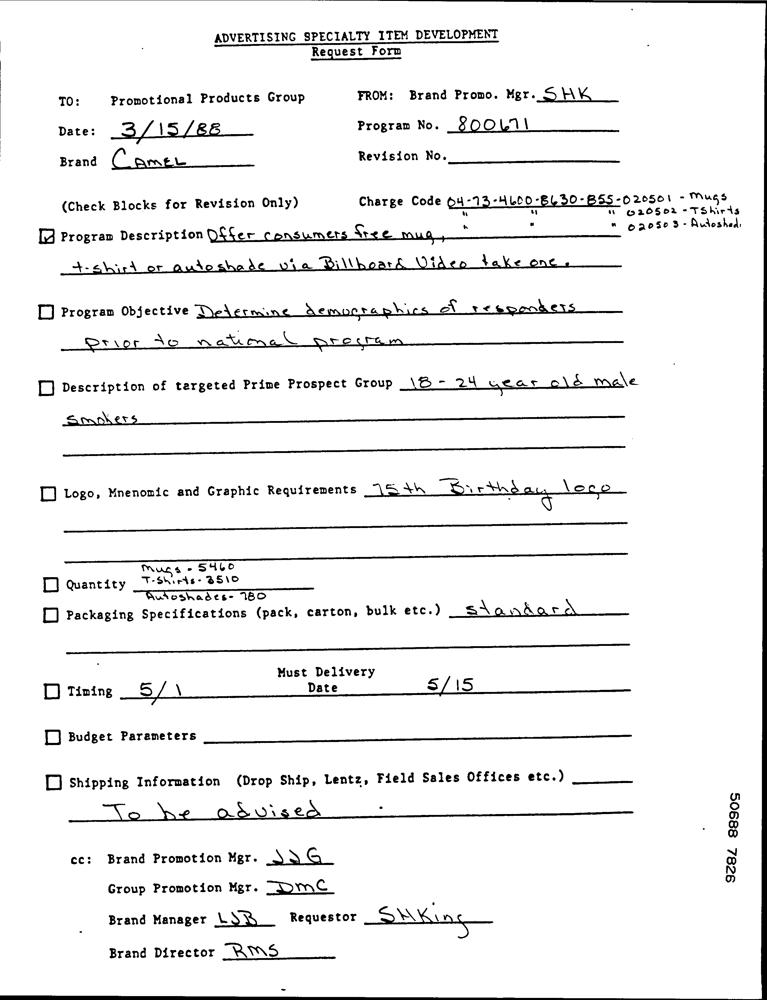 ADVERTISING SPECIALTY ITEM DEVELOPMENT
Request Form
TO: Promotional Products Group FROM: Brand Promo. Mgr. SHK
Date: 3/15/88 Program No. 800671
Brand CAMEL Revision No.
(Check Blocks for Revision Only) Charge Code 04-73-4600-8630-855-020501 - Mugs
" " " 020502 - TShirts
Program Description Offer consumers free mug, " " " 020503 - Autoshad.
t-shirt or autoshade via Billboard Video take one.
Program Objective Determine demographics of responders
prior to national program
Description of targeted Prime Prospect Group 18 - 24 year old male
smokers
Logo, Mnenomic and Graphic Requirements 75th Birthday logo
Mugs - 5460
Quantity T-Shirts - 3510
Autoshades - 780
Packaging Specifications (pack, carton, bulk etc.) standard
Must Delivery
Timing 5/1 Date 5/15
Budget Parameters
Shipping Information (Drop Ship, Lentz, Field Sales Offices etc.)
To be advised
cc: Brand Promotion Mgr. JJG
Group Promotion Mgr. DMC
Brand Manager LJB Requestor SHKing
Brand Director RMS
50688 7826